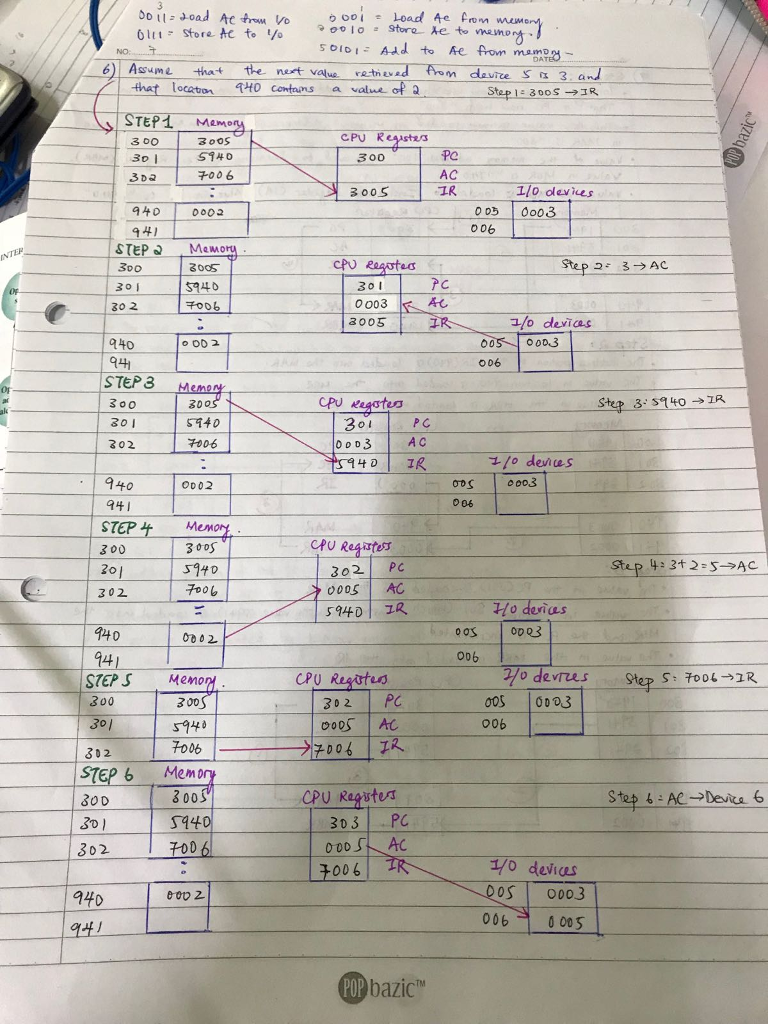 3
0011 = Load AC from I/O 0001 = Load AC from memory
0111 = Store AC to I/O 20010 = Store AC to memory.
50101 = Add to AC from memory
NO. 7 DATE
6) Assume that the next value retrieved from device 5 is 3 and
that location 940 contains a value of 2. Step 1 = 3005 → IR
STEP 1 Memory CPU Registers
300 3005 300 PC
301 5940 AC
302 7006 3005 IR I/O devices
:
940 0002 005 0003
941 006
STEP 2 Memory. CPU Registers Step 2 = 3 → AC
300 3005 301 PC
301 5940 0003 AC
302 7006 3005 IR I/O devices
:
940 0002 005 0003
941 006
STEP 3 Memory CPU Registers Step 3: 5940 → IR
300 3005 301 PC
301 5940 0003 AC
302 7006 5940 IR I/O devices
:
940 0002 005 0003
941 006
STEP 4 Memory. CPU Registers
300 3005 302 PC Step 4 = 3+2=5 → AC
301 5940 0005 AC
302 7006 5940 IR I/O devices
=
940 0002 005 0003
941 006
STEP 5 Memory. CPU Registers I/O devices Step 5: 7006 → IR
300 3005 302 PC 005 0003
301 5940 0005 AC 006
302 7006 7006 IR
STEP 6 Memory CPU Registers Step 6 = AC → Device 6
300 3005 303 PC
301 5940 0005 AC
302 7006 7006 IR I/O devices
:
940 0002 005 0003
941 006 0005
POP bazic™
POP bazic™
INTER